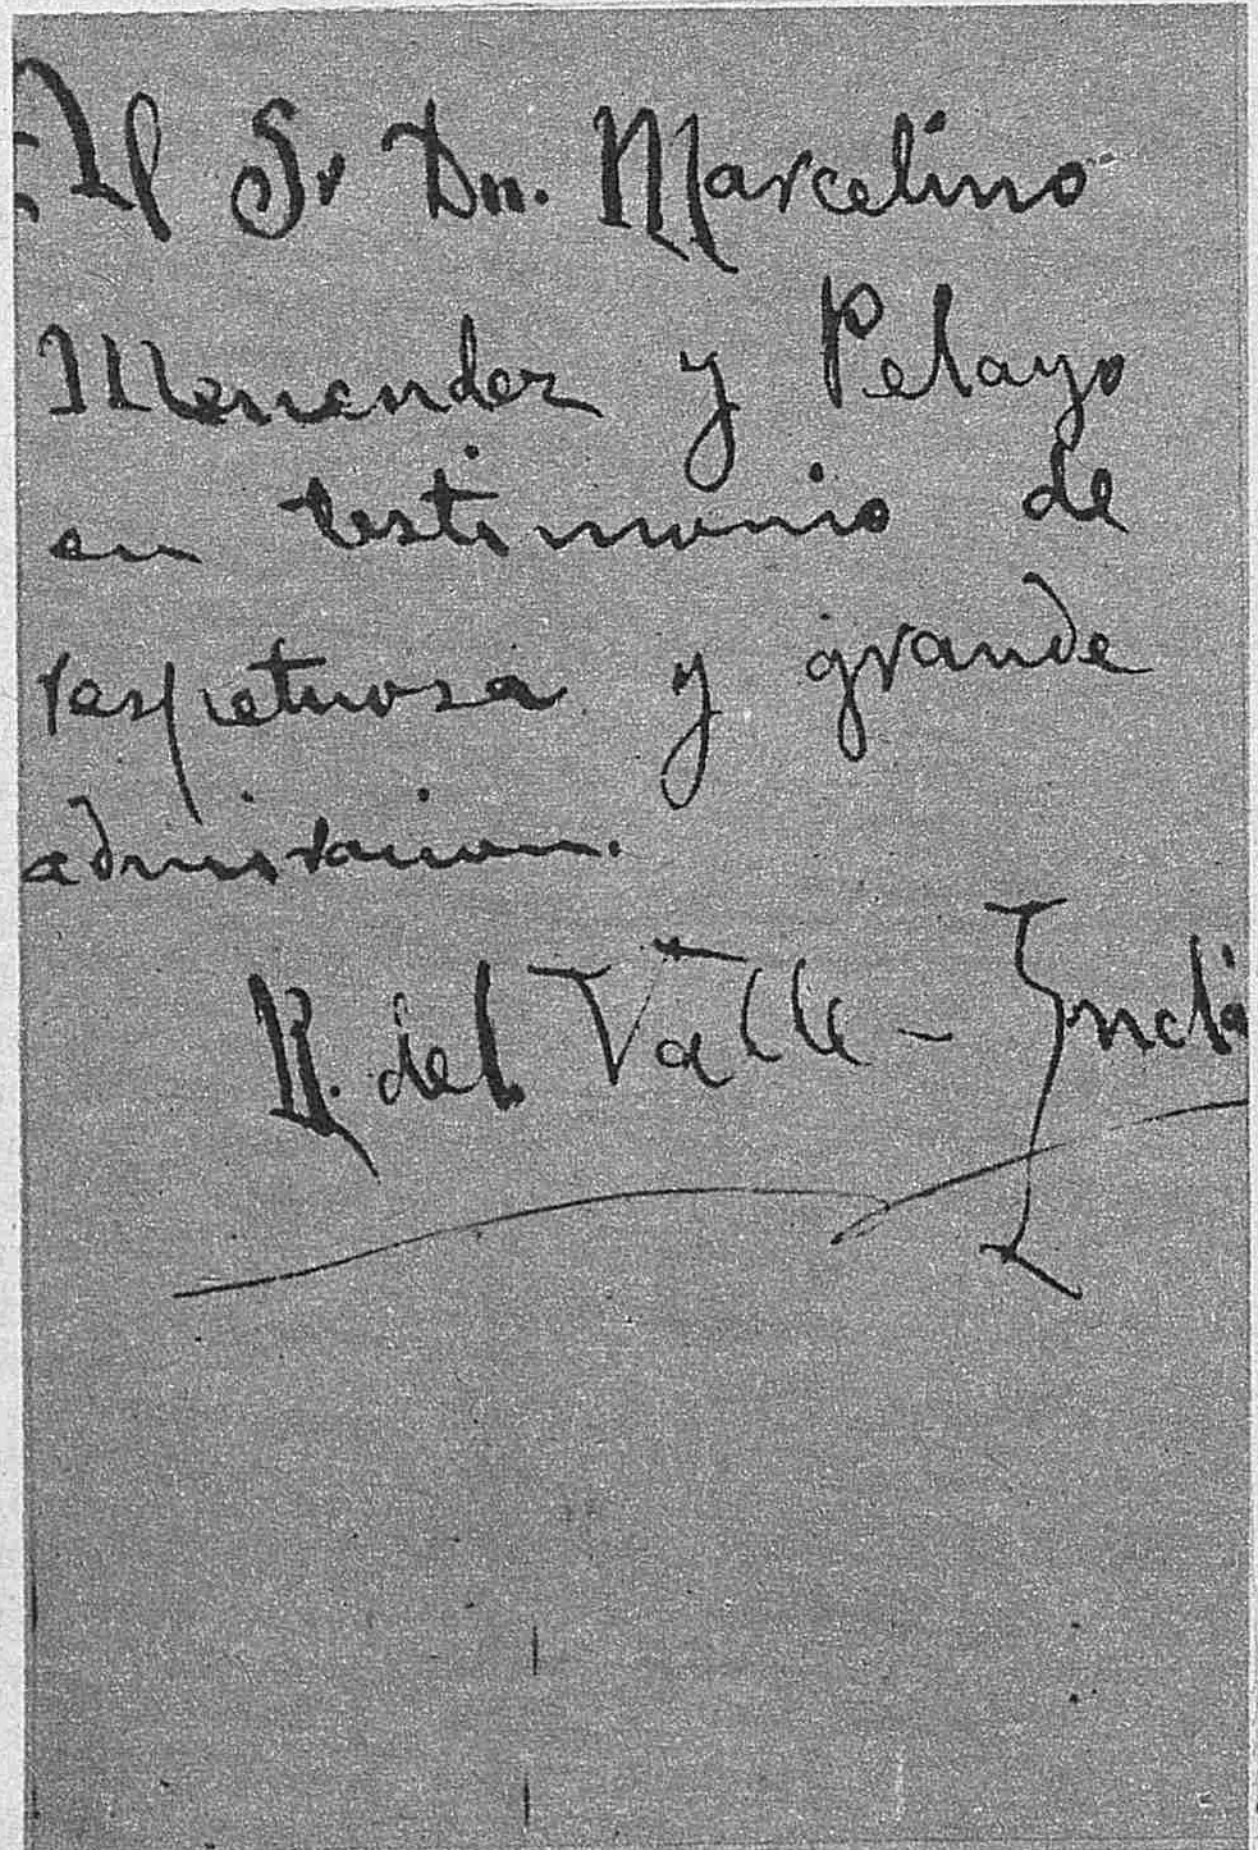 Al Sr Dn. Marcelino
Menendez y Pelayo
en testimonio de
respetuosa y grande
admiracion.
R. del Valle-Inclá